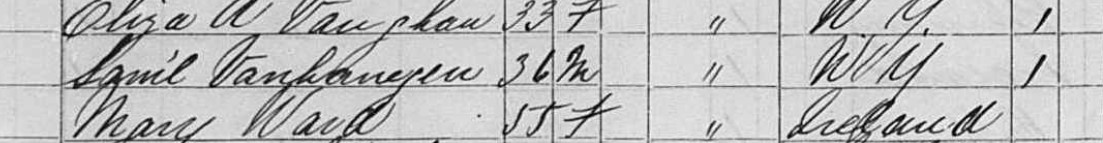 Eliza A Vaughan 33 F " N.Y. 1
Sam'l Vanhangen 36 M " N Y 1
Mary Ward 55 F " Ireland